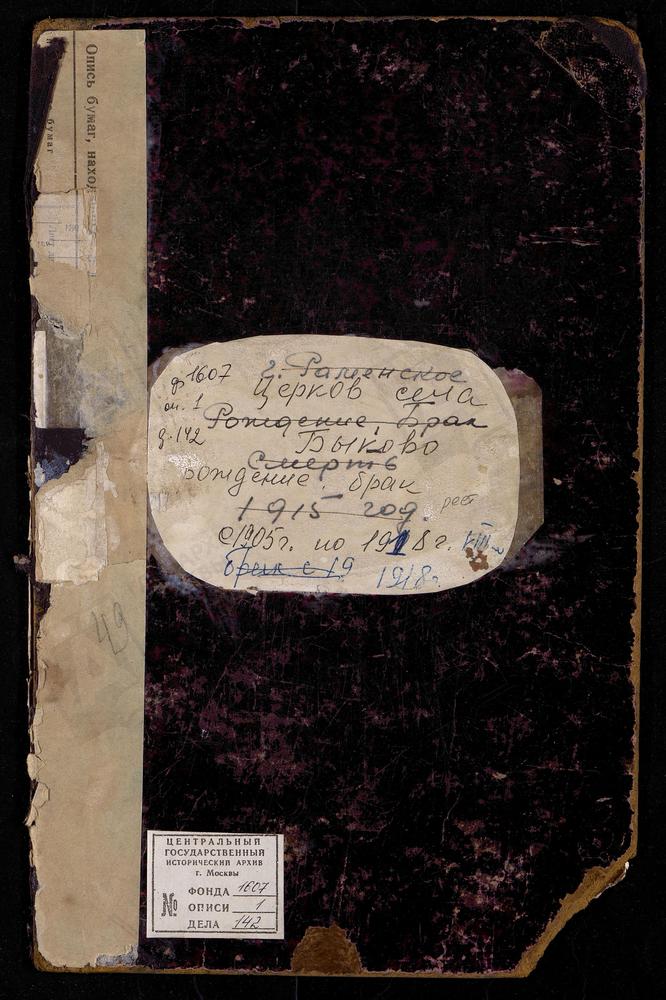 Опись бумаг, наход
бумаг
ф 1607
оп. 1
д. 142
г. Раменское
Церков села
Рождение, брак
Быково
Смерть
рождение, брак
1915 год.
с 1905г. по 1918г.
Брак с 19 1918г.
49
ЦЕНТРАЛЬНЫЙ
ГОСУДАРСТВЕННЫЙ
ИСТОРИЧЕСКИЙ АРХИВ
г. Москвы
№
ФОНДА 1607
ОПИСИ 1
ДЕЛА 142